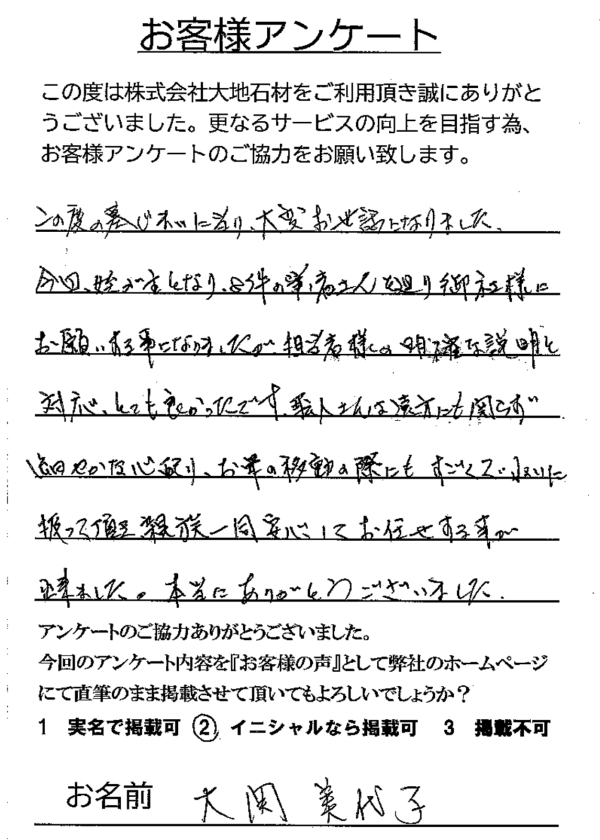 お客様アンケート
この度は株式会社大地石材をご利用頂き誠にありがと
うございました。更なるサービスの向上を目指す為、
お客様アンケートのご協力をお願い致します。
この度の墓じまいに当り、大変お世話になりました。
今回、姪が主となり、8件の業者さんを廻り御社様に
お願いする事になりましたが、担当者様の明確な説明と
対応、とても良かったです。職人さんは遠方にも関らず
細やかな心配り、お骨の移動の際にもすごくていねいに
扱って頂き親族一同安心してお任せする事が
出来ました。本当にありがとうございました。
アンケートのご協力ありがとうございました。
今回のアンケート内容を『お客様の声』として弊社のホームページ
にて直筆のまま掲載させて頂いてもよろしいでしょうか？
1 実名で掲載可 ② イニシャルなら掲載可 3 掲載不可
お名前 大関 美代子